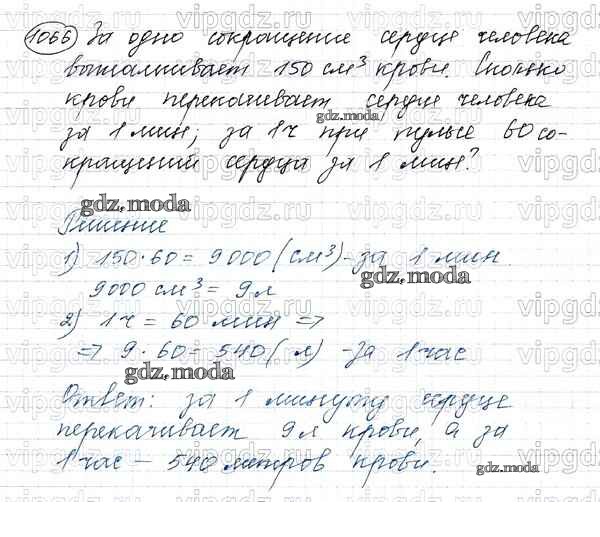 1066 За одно сокращение сердце человека
выталкивает 150 см³ крови. Сколько
крови перекачивает сердце человека
gdz.moda/
за 1 мин; за 1 ч при пульсе 60 со-
кращений сердца за 1 мин?
gdz.moda
Решение
1) 150·60 = 9000 (см³) - за 1 мин.
gdz.moda
9000 см³ = 9 л
2) 1 ч = 60 мин =>
=> 9·60 = 540 (л) - за 1 час
gdz.moda
Ответ: за 1 минуту сердце
перекачивает 9 л крови, а за
1 час – 540 литров крови.
gdz.moda
vipgdz.ru